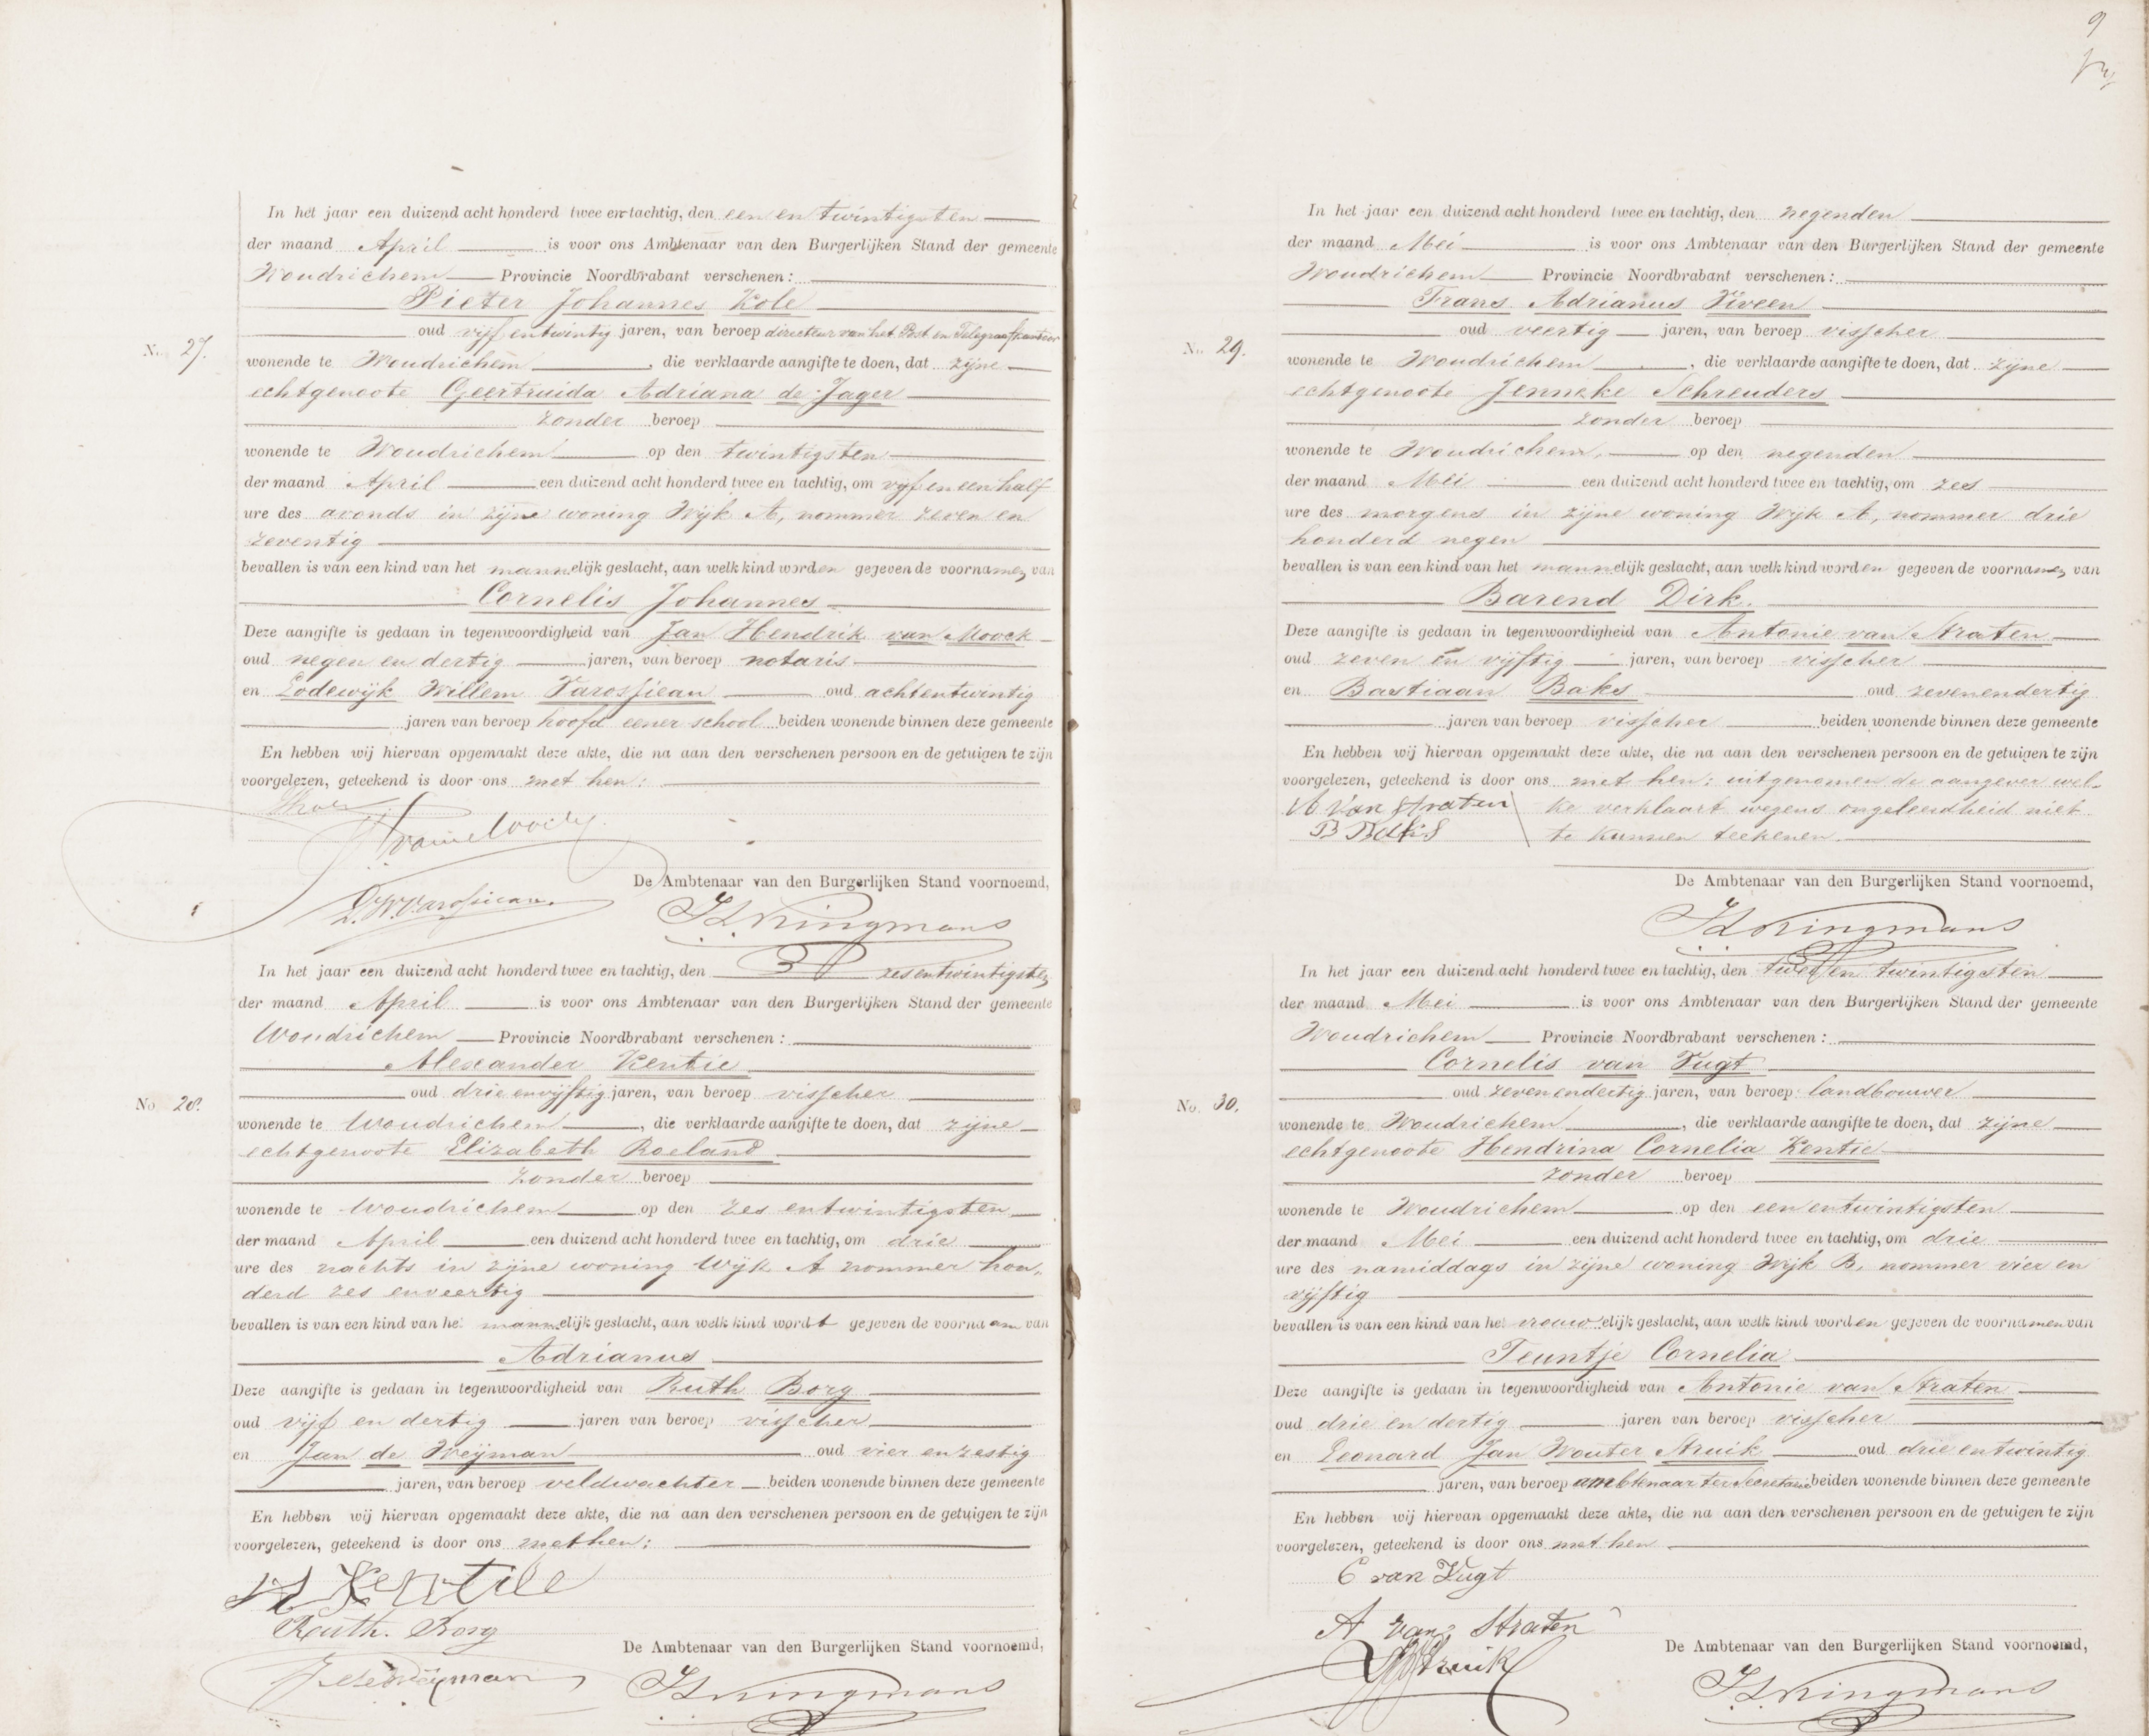 In het jaar een duizend acht honderd twee en tachtig, den een en twintigsten
der maand April is voor ons Ambtenaar van den Burgerlijken Stand der gemeente
Woudrichem Provincie Noordbrabant verschenen:
Pieter Johannes Kole
oud vijf en twintig jaren, van beroep directeur van het Post en Telegraafkantoor
No. 27.
wonende te Woudrichem, die verklaarde aangifte te doen, dat zijne
echtgenoote Geertruida Adriana de Jager
zonder beroep
wonende te Woudrichem op den twintigsten
der maand April een duizend acht honderd twee en tachtig, om vijf en een half
ure des avonds in zijne woning Wijk A, nommer zeven en
zeventig
bevallen is van een kind van het mannelijk geslacht, aan welk kind worden gegeven de voornamen van
Cornelis Johannes
Deze aangifte is gedaan in tegenwoordigheid van Jan Hendrik van Moock
oud negen en dertig jaren, van beroep notaris
en Lodewijk Willem Varossieau oud achtentwintig
jaren van beroep hoofd eener school beiden wonende binnen deze gemeente
En hebben wij hiervan opgemaakt deze akte, die na aan den verschenen persoon en de getuigen te zijn
voorgelezen, geteekend is door ons met hen:
De Ambtenaar van den Burgerlijken Stand voornoemd,
L.W. Varossieau.
In het jaar een duizend acht honderd twee en tachtig, den zesentwintigsten
der maand April is voor ons Ambtenaar van den Burgerlijken Stand der gemeente
Woudrichem Provincie Noordbrabant verschenen:
Alexander Kentie
oud drie en vijftig jaren, van beroep visscher
No 28.
wonende te Woudrichem, die verklaarde aangifte te doen, dat zijne
echtgenoote Elizabeth Roeland
zonder beroep
wonende te Woudrichem op den zes entwintigsten
der maand April een duizend acht honderd twee en tachtig, om drie
ure des nachts in zijne woning Wijk A nommer hon„
derd zes enveertig
bevallen is van een kind van het mannelijk geslacht, aan welk kind wordt gegeven de voornaam van
Adrianus
Deze aangifte is gedaan in tegenwoordigheid van Ruth Borg
oud vijf en dertig jaren van beroep visscher
en Jan de Weijman oud vier en zestig
jaren, van beroep veldwachter beiden wonende binnen deze gemeente
En hebben wij hiervan opgemaakt deze akte, die na aan den verschenen persoon en de getuigen te zijn
voorgelezen, geteekend is door ons met hen:
A Kentie
Ruth. Borg
De Ambtenaar van den Burgerlijken Stand voornoemd,
J de Weijman
9
In het jaar een duizend acht honderd twee en tachtig, den negenden
der maand Mei is voor ons Ambtenaar van den Burgerlijken Stand der gemeente
Woudrichem Provincie Noordbrabant verschenen:
Frans Adrianus Viveen
oud veertig jaren, van beroep visscher
No. 29.
wonende te Woudrichem, die verklaarde aangifte te doen, dat zijne
echtgenoote Jenneke Schreuders
zonder beroep
wonende te Woudrichem, op den negenden
der maand Mei een duizend acht honderd twee en tachtig, om zes
ure des morgens in zijne woning Wijk A, nommer drie
honderd negen
bevallen is van een kind van het mannelijk geslacht, aan welk kind worden gegeven de voornamen van
Barend Dirk.
Deze aangifte is gedaan in tegenwoordigheid van Antonie van Straten
oud zeven en vijftig jaren, van beroep visscher
en Bastiaan Baks oud zevenendertig
jaren van beroep visscher beiden wonende binnen deze gemeente
En hebben wij hiervan opgemaakt deze akte, die na aan den verschenen persoon en de getuigen te zijn
voorgelezen, geteekend is door ons met hen: uitgenomen de aangever wel-
A van Straten ke verklaart wegens ongeleerdheid niet
B Baks te kunnen teekenen.
De Ambtenaar van den Burgerlijken Stand voornoemd,
In het jaar een duizend acht honderd twee en tachtig, den twee en twintigsten
der maand Mei is voor ons Ambtenaar van den Burgerlijken Stand der gemeente
Woudrichem Provincie Noordbrabant verschenen:
Cornelis van Vugt
oud zevenendertig jaren, van beroep landbouwer
No. 30.
wonende te Woudrichem, die verklaarde aangifte te doen, dat zijne
echtgenoote Hendrina Cornelia Kentie
zonder beroep
wonende te Woudrichem op den eenentwintigsten
der maand Mei een duizend acht honderd twee en tachtig, om drie
ure des namiddags in zijne woning Wijk B, nommer vier en
vijftig
bevallen is van een kind van het vrouwelijk geslacht, aan welk kind worden gegeven de voornamen van
Teuntje Cornelia
Deze aangifte is gedaan in tegenwoordigheid van Antonie van Straten
oud drie en dertig jaren van beroep visscher
en Leonard Jan Wouter Struik oud drie entwintig
jaren, van beroep ambtenaar ter Secretarie beiden wonende binnen deze gemeente
En hebben wij hiervan opgemaakt deze akte, die na aan den verschenen persoon en de getuigen te zijn
voorgelezen, geteekend is door ons met hen
C van Vugt
A van Straten
De Ambtenaar van den Burgerlijken Stand voornoemd,
Struik